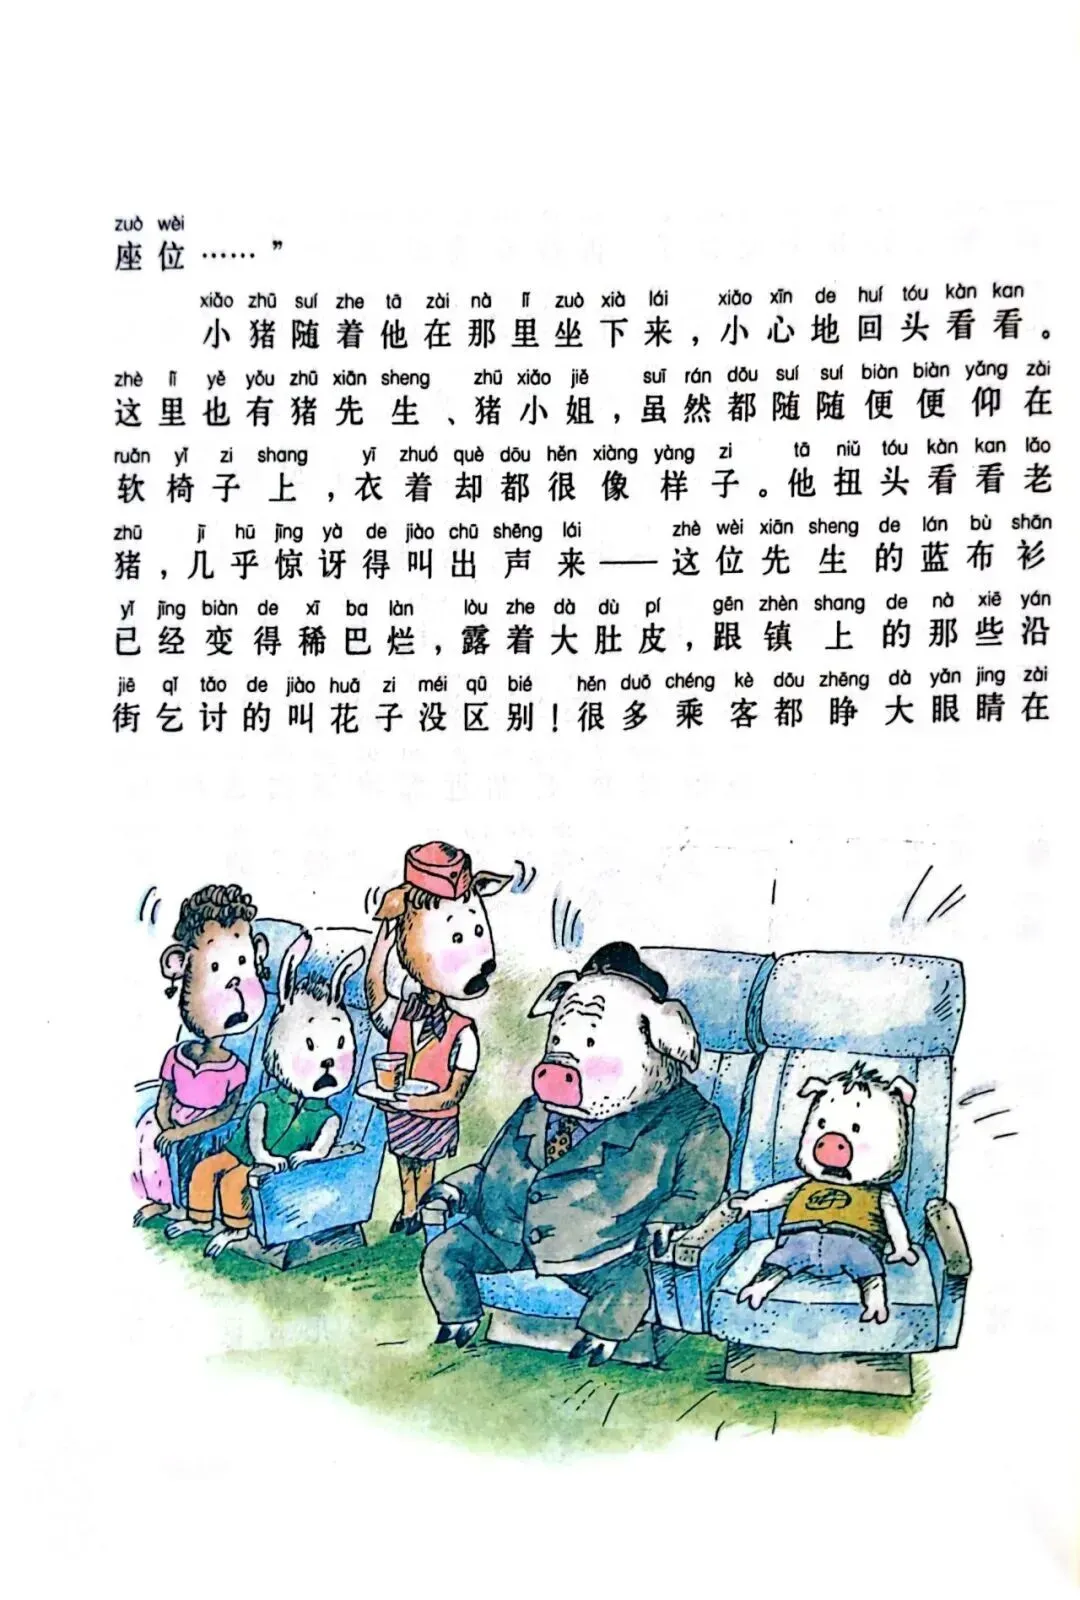 zuò wèi
座位……”
xiǎo zhū suí zhe tā zài nà lǐ zuò xià lái xiǎo xīn de huí tóu kàn kan
小猪随着他在那里坐下来，小心地回头看看。
zhè lǐ yě yǒu zhū xiān sheng zhū xiǎo jiě suī rán dōu suí suí biàn biàn yǎng zài
这里也有猪先生、猪小姐，虽然都随随便便仰在
ruǎn yǐ zi shang yī zhuó què dōu hěn xiàng yàng zi tā niǔ tóu kàn kan lǎo
软椅子上，衣着却都很像样子。他扭头看看老
zhū jī hū jīng yà de jiào chū shēng lái zhè wèi xiān sheng de lán bù shān
猪，几乎惊讶得叫出声来——这位先生的蓝布衫
yǐ jīng biàn de xī ba làn lòu zhe dà dù pí gēn zhèn shang de nà xiē yán
已经变得稀巴烂，露着大肚皮，跟镇上的那些沿
jiē qǐ tǎo de jiào huā zi méi qū bié hěn duō chéng kè dōu zhēng dà yǎn jing zài
街乞讨的叫花子没区别！很多乘客都睁大眼睛在